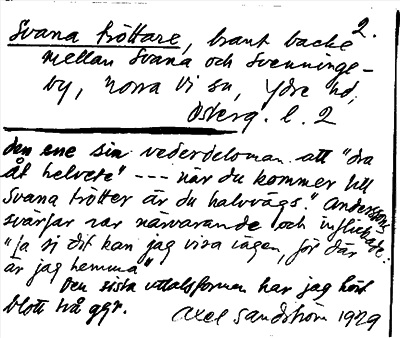 2.
Svana tröttare, brant backe
mellan Svana och Svenninge-
by, norra Vi sn, Ydre hd,
Österg. l. 2
den ene sin vederdeloman att "dra
åt helvete" --- när du kommer till
Svana trötter är du halvvägs." Anderssons
svärfar var närvarande och inflickade:
"Ja si dit kan jag visa vägen, för där
är jag hemma"
Den sista uttalsformen har jag hört
blott två ggr.
Axel Sandström 1929